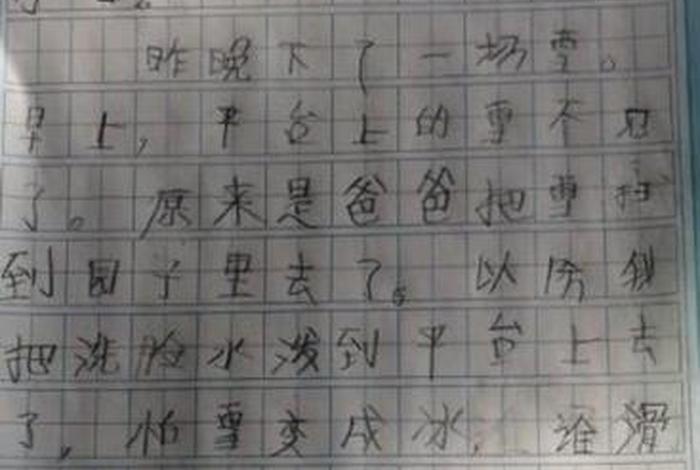 昨晚下了一场雪。
早上，平台上的雪不见
了。原来是爸爸把雪扫
到园子里去了。以防我
把洗脸水泼到平台上去
了，怕雪变成冰，滑